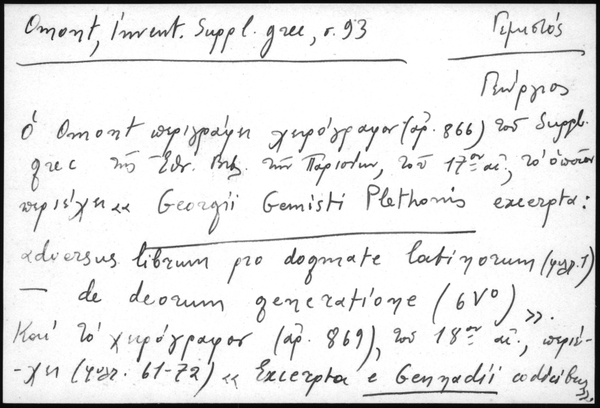 Omont, Invent. Suppl. grec, σ. 93
Γεμιστός
Γεώργιος
Ὁ Omont περιγράφει χειρόγραφον (ἀρ. 866) τοῦ Suppl.
grec τῆς Ἐθν. Βιβ. τῶν Παρισίων, τοῦ 17ου αἰ., τὸ ὁποῖον
περιέχει «Georgii Gemisti Plethonis excerpta:
adversus librum pro dogmate latinorum (φυλ. 1)
— de deorum generatione (6v°)».
Καὶ τὸ χειρόγραφον (ἀρ. 869), τοῦ 18ου αἰ., περιέ-
-χει (φυλ. 61-72) «Excerpta e Gennadii codicibus».